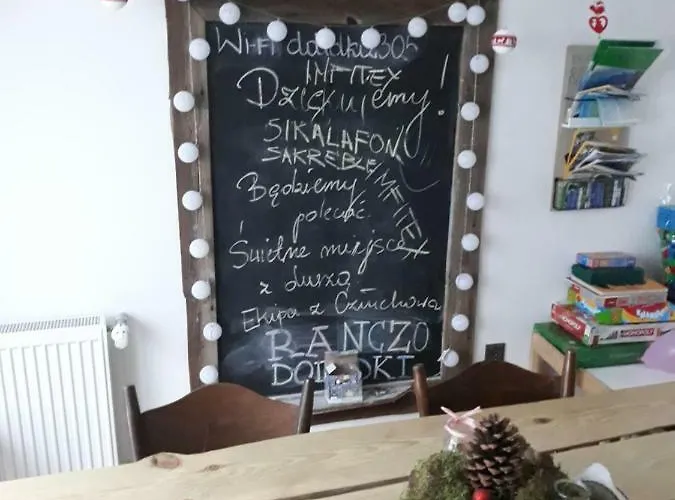 Wi-Fi dodki2305
INFITEX
Dziękujemy!
SIKALAFON
SAKREBLE
INFITEX
Będziemy
polecać.
Świetne miejsce
z duszą
Ekipa z Człuchowa
RANCZO
DODKI
MONOPOLY